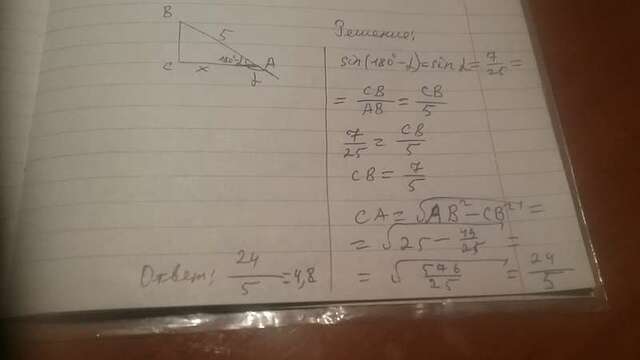 B
5
C x 180°-α A
α
Решение:
sin(180°-α)=sin α = 7/25 =
= CB/AB = CB/5
7/25 = CB/5
CB = 7/5
CA = √AB²-CB² =
= √25 - 49/25 =
= √576/25 = 24/5
Ответ: 24/5 = 4,8